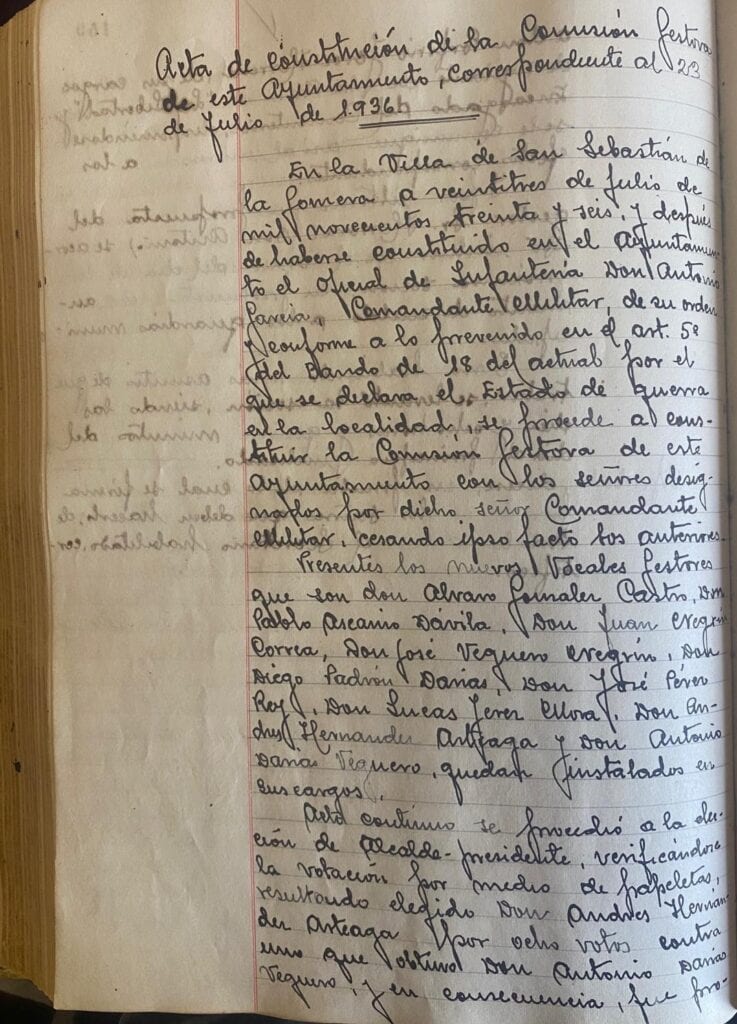 Acta de constitución de la Comisión Gestora
de este Ayuntamiento, correspondiente al 23
de Julio de 1.936.
En la Villa de San Sebastián de
la Gomera a veintitres de Julio de
mil novecientos treinta y seis, y después
de haberse constituido en el Ayuntamien-
to el Oficial de Infantería Don Antonio
García, Comandante Militar, de su orden
y conforme a lo prevenido en el art. 5º
del Bando de 18 del actual por el
que se declara el Estado de guerra
en la localidad, se procede a cons-
tituir la Comisión Gestora de este
Ayuntamiento con los señores desig-
nados por dicho señor Comandante
Militar, cesando ipso facto los anteriores.
Presentes los nuevos Vocales Gestores
que son don Alvaro Gonzalez Castro, Don
Pablo Ascanio Dávila, Don Juan Negrín
Correa, Don José Veguero Negrín, Don
Diego Padrón Darias, Don José Pérez
Rey, Don Lucas Jerez Mora, Don An-
drés Hernandez Arteaga y Don Antonio
Darias Veguero, quedan instalados en
sus cargos.
Acto continuo se procedió a la elec-
ción de Alcalde-presidente, verificándose
la votación por medio de papeletas,
resultando elegido Don Andres Hernan-
dez Arteaga por ocho votos contra
uno que obtuvo Don Antonio Darias
Veguero, y en consecuencia, fue pro-